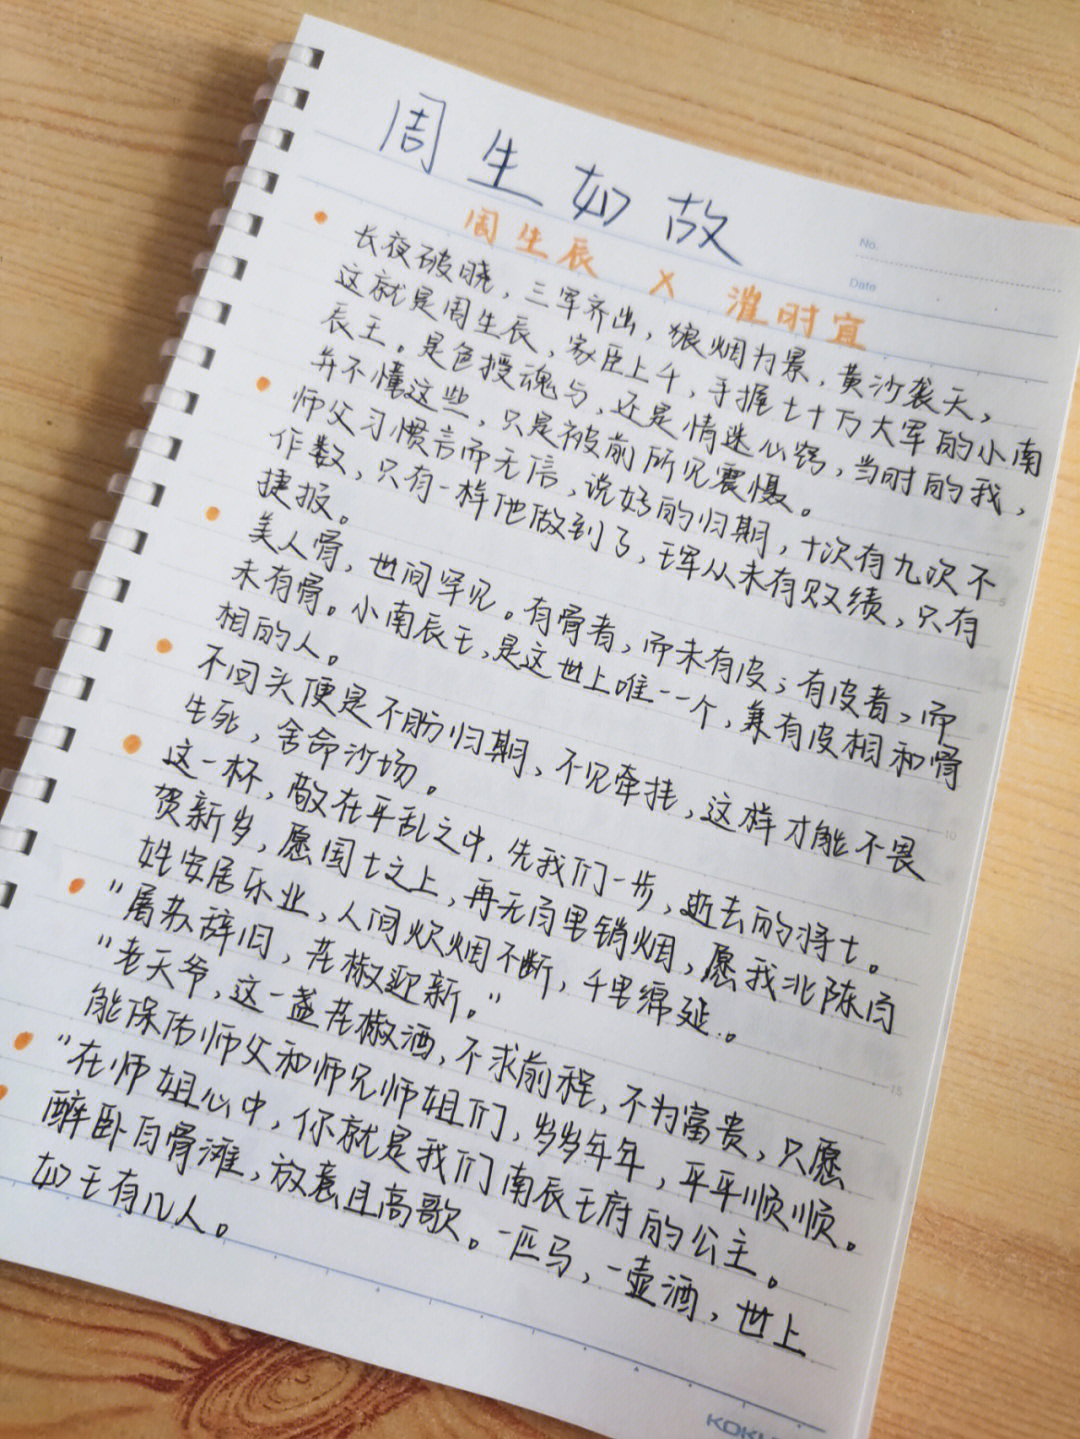 周生如故
No.
Date
周生辰 X 漼时宜
长夜破晓，三军齐出，狼烟为景，黄沙袭天，
这就是周生辰，家臣上千，手握七十万大军的小南
辰王。是色授魂与，还是情迷心窍，当时的我，
并不懂这些，只是被前所见震慑。
师父习惯言而无信，说好的归期，十次有九次不
作数，只有一样他做到了，王军从未有败绩，只有
捷报。
美人骨，世间罕见。有骨者，而未有皮；有皮者，而
未有骨。小南辰王，是这世上唯一一个，兼有皮相和骨
相的人。
不回头便是不盼归期，不见牵挂，这样才能不畏
生死，舍命沙场。
这一杯，敬在平乱之中，先我们一步，逝去的将士。
贺新岁，愿国土之上，再无百里销烟，愿我北陈百
姓安居乐业，人间炊烟不断，千里绵延。
"屠苏辞旧，花椒迎新。"
"老天爷，这一盏花椒酒，不求前程，不为富贵，只愿
能保佑师父和师兄师姐们，岁岁年年，平平顺顺。
"在师姐心中，你就是我们南辰王府的公主。
醉卧白骨滩，放意且高歌。一匹马，一壶酒，世上
如王有几人。
5
10
15